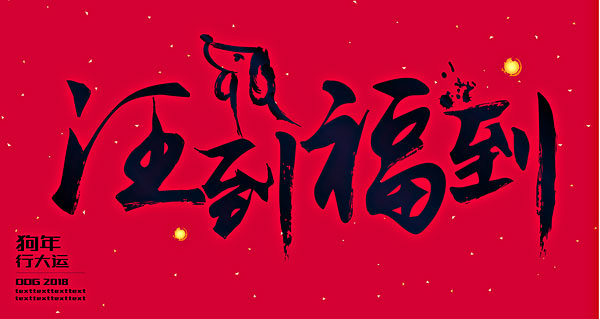 汪到福到
狗年
行大运
DOG 2018
texttexttexttext
texttexttexttext